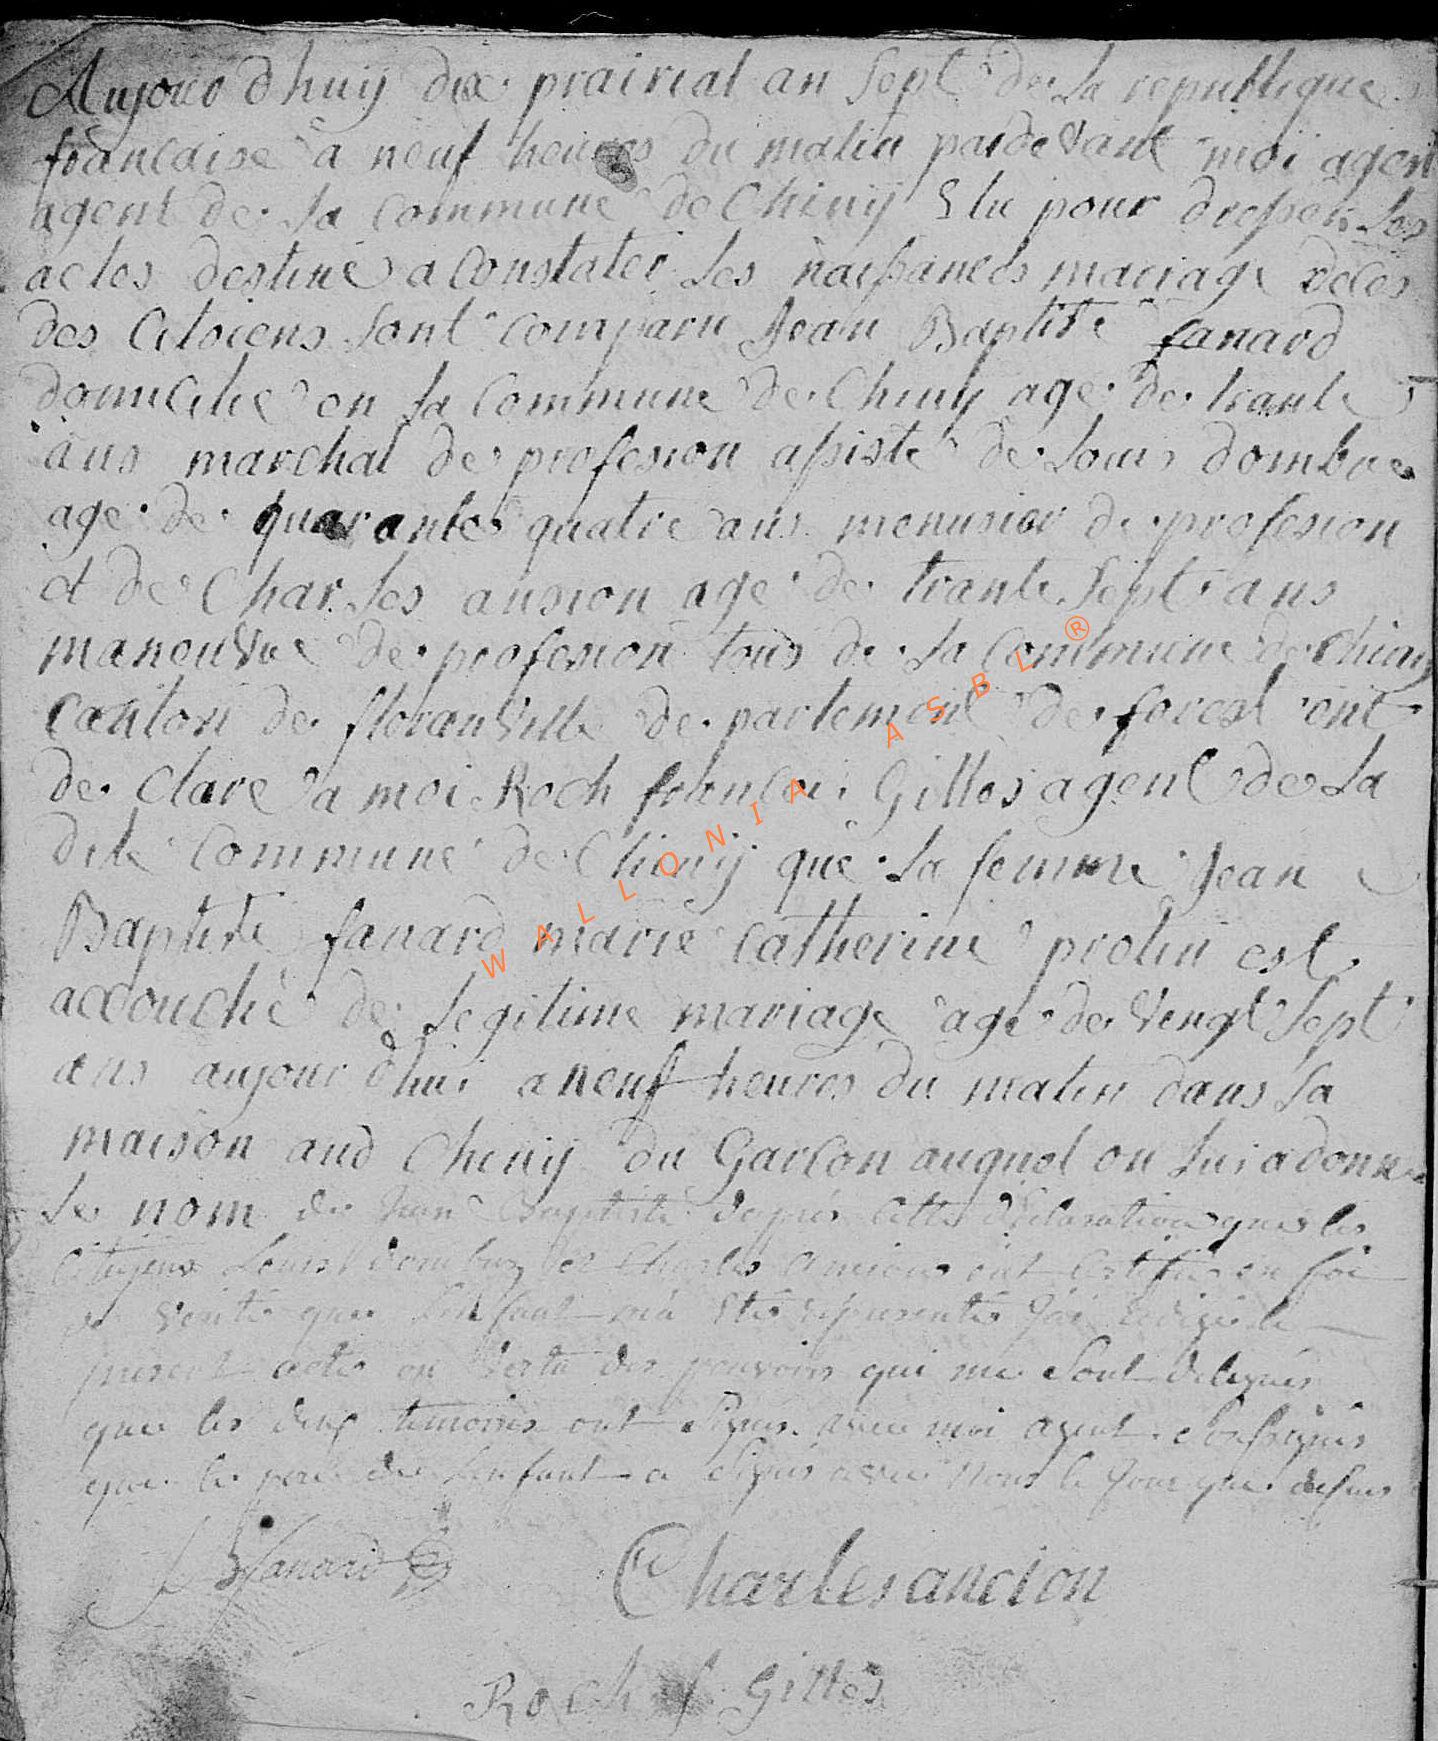 Aujourdhuy dix prairial an sept de la republique
francaise a neuf heures du matin pardevant moi agent
agent de la commune de Chiny Elu pour dresser les
actes destiné a constater les naissances mariage deces
des Citoiens sont comparu Jean Baptiste fanard
domicilie en la commune de Chiny age de trante
ans marchal de profesion assisté de Louis dombre
age de quarantes quatre ans menusier de profesion
et de Charles ansion age de trante sept ans
maneuvre de profesion tous de la commune de Chiny
canton de floranville de partement de forest ont
de clare a moi Roch francoi Gilles agent de la
dite commune de Chiny que la femme Jean
Baptiste fanard marie catherine protin est
accouché de legitime mariage age de vengt sept
ans aujourdhui a neuf heures du matin dans sa
maison aud Chiny du Garcon auquel on lui a donné
le nom de Jean Baptiste dapres cette declaration que les
Citoyens Louis dombre et Charles ancion ont certifié en foi
de verité que lenfant ma eté representé Jai redigé le
present acte en vertu des pouvoirs qui me sont delegués
que les deux temoins ont signés avec moi agent soussignés
que le pere de lenfant a signé avec nous le jour que dessus
fanard
Charles ancion
Roch f Gilles
WALLONIA ASBL ®